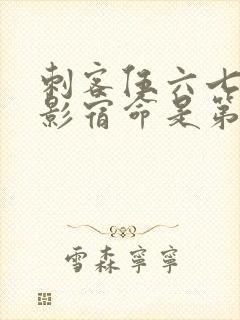 刺客伍六七
影宿命是第
雪森寧寧